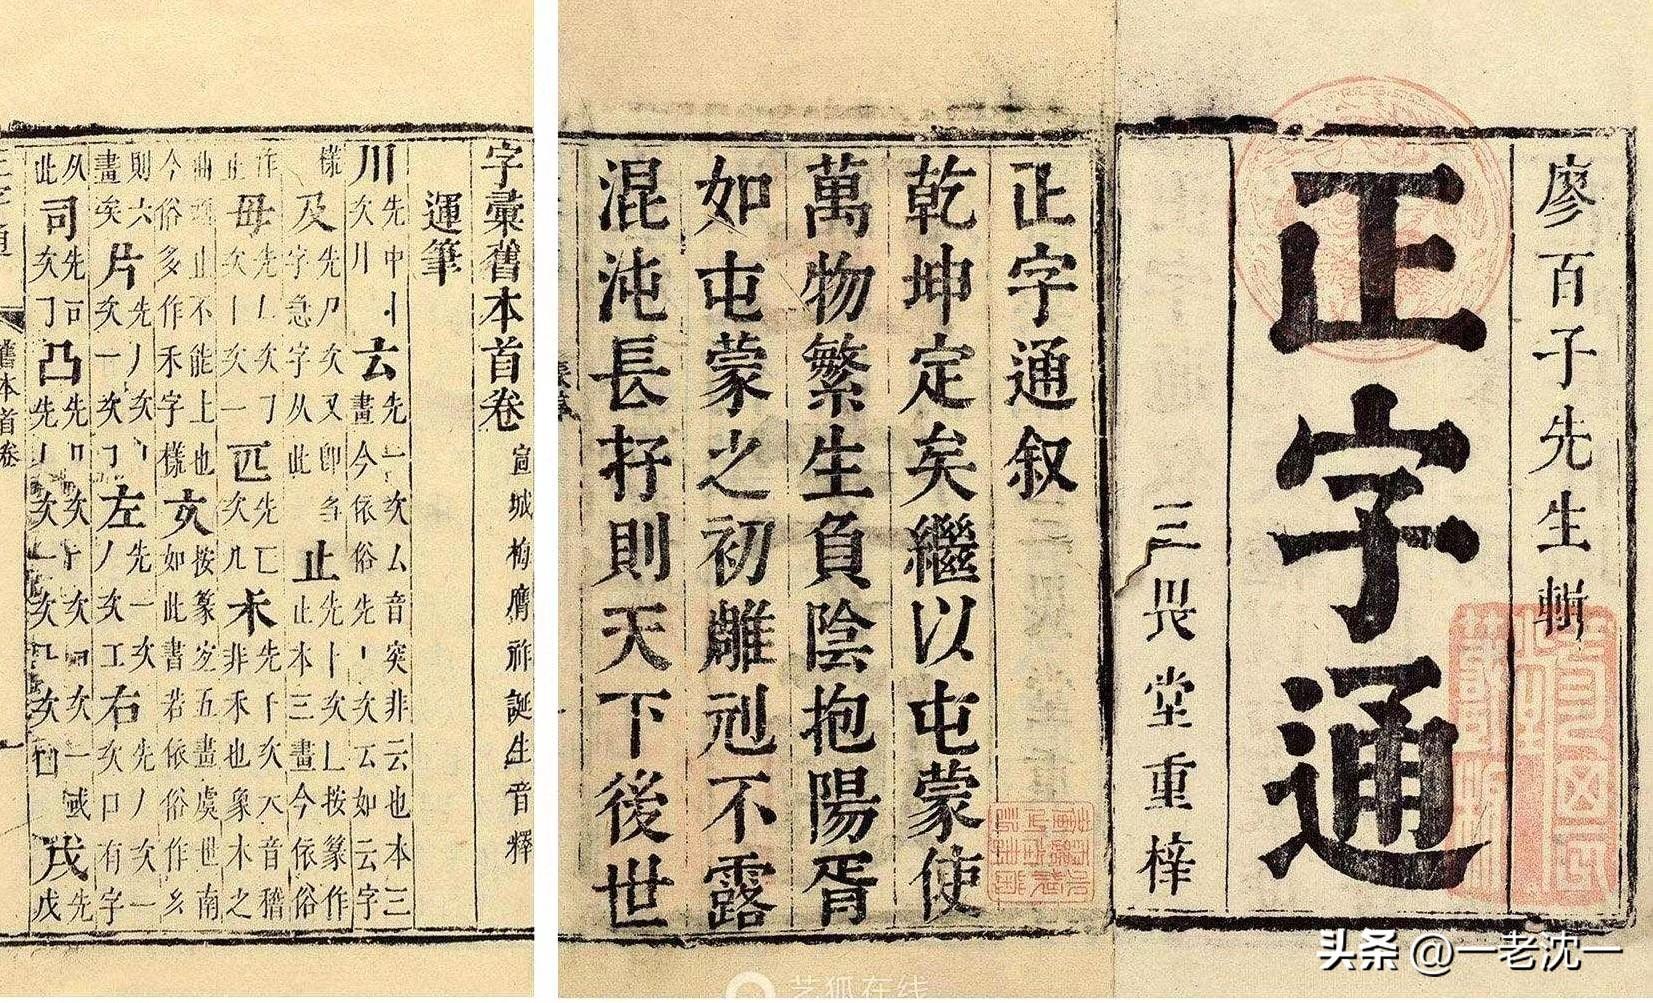 廖百子先生輯
正字通
三畏堂重梓
正字通叙
乾坤定矣繼以屯蒙使
萬物繁生負陰抱陽胥
如屯蒙之初雕刓不露
混沌長抒則天下後世
字彙舊本首卷 宣城梅膺祚誕生音釋
運筆
川先中丿次川云先一次厶音突非云也本三畫今依俗先丶次云如云字
樣及先乃次又即字急字从此止先丨次乚按篆作止本三畫今依俗
作止毋先乚次𠃌次丨次一匹先匚次儿禾先丅次大音稽非禾也象木之
曲頭止不能上也今俗多作禾字樣亥按篆亥五畫虞世南如此書若依俗作乡
則六畫矣片先丿次丨次一次𠃍左先一次丿次工右先丿次一次口有字
从此司凸戌先戊
舊本首卷
头条 @一老沈一
艺狐在线